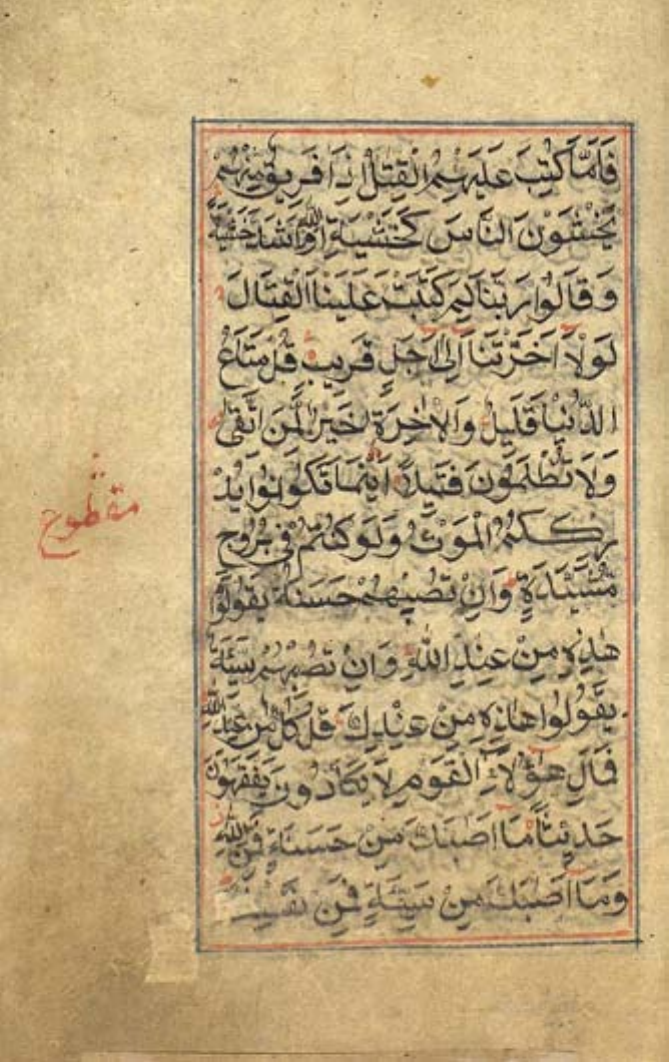 فَلَمَّا كُتِبَ عَلَيْهِمُ الْقِتَلُ اِذَا فَرِيقٌ مِنْهُمْ
يَخْشَوْنَ النَّاسَ كَخَشْيَةِ اللّٰهِ اَوْ اَشَدَّ خَشْيَةً
وَقَالُوا رَبَّنَا لِمَ كَتَبْتَ عَلَيْنَا الْقِتَالَ
لَوْلَا اَخَّرْتَنَا اِلٰى اَجَلٍ قَرِيبٍ قُلْ مَتَاعُ
الدُّنْيَا قَلِيلٌ وَالْاٰخِرَةُ خَيْرٌ لِمَنِ اتَّقٰى
وَلَا تُظْلَمُونَ فَتِيلًا اَيْنَمَا تَكُونُوا يُدْ
رِكْكُمُ الْمَوْتُ وَلَوْ كُنْتُمْ فِى بُرُوجٍ
مُشَيَّدَةٍ وَاِنْ تُصِبْهُمْ حَسَنَةٌ يَقُولُوا
هٰذِهِ مِنْ عِنْدِ اللّٰهِ وَاِنْ تُصِبْهُمْ سَيِّئَةٌ
يَقُولُوا هٰذِهِ مِنْ عِنْدِكَ قُلْ كُلٌّ مِنْ عِنْدِ اللّٰهِ
فَمَالِ هٰٓؤُلَاۤءِ الْقَوْمِ لَا يَكَادُونَ يَفْقَهُونَ
حَدِيثًا مَا اَصَبَكَ مِنْ حَسَنَةٍ فَمِنَ اللّٰهِ
وَمَا اَصَبَكَ مِنْ سَيِّئَةٍ فَمِنْ نَفْسِكَ
مقطوع